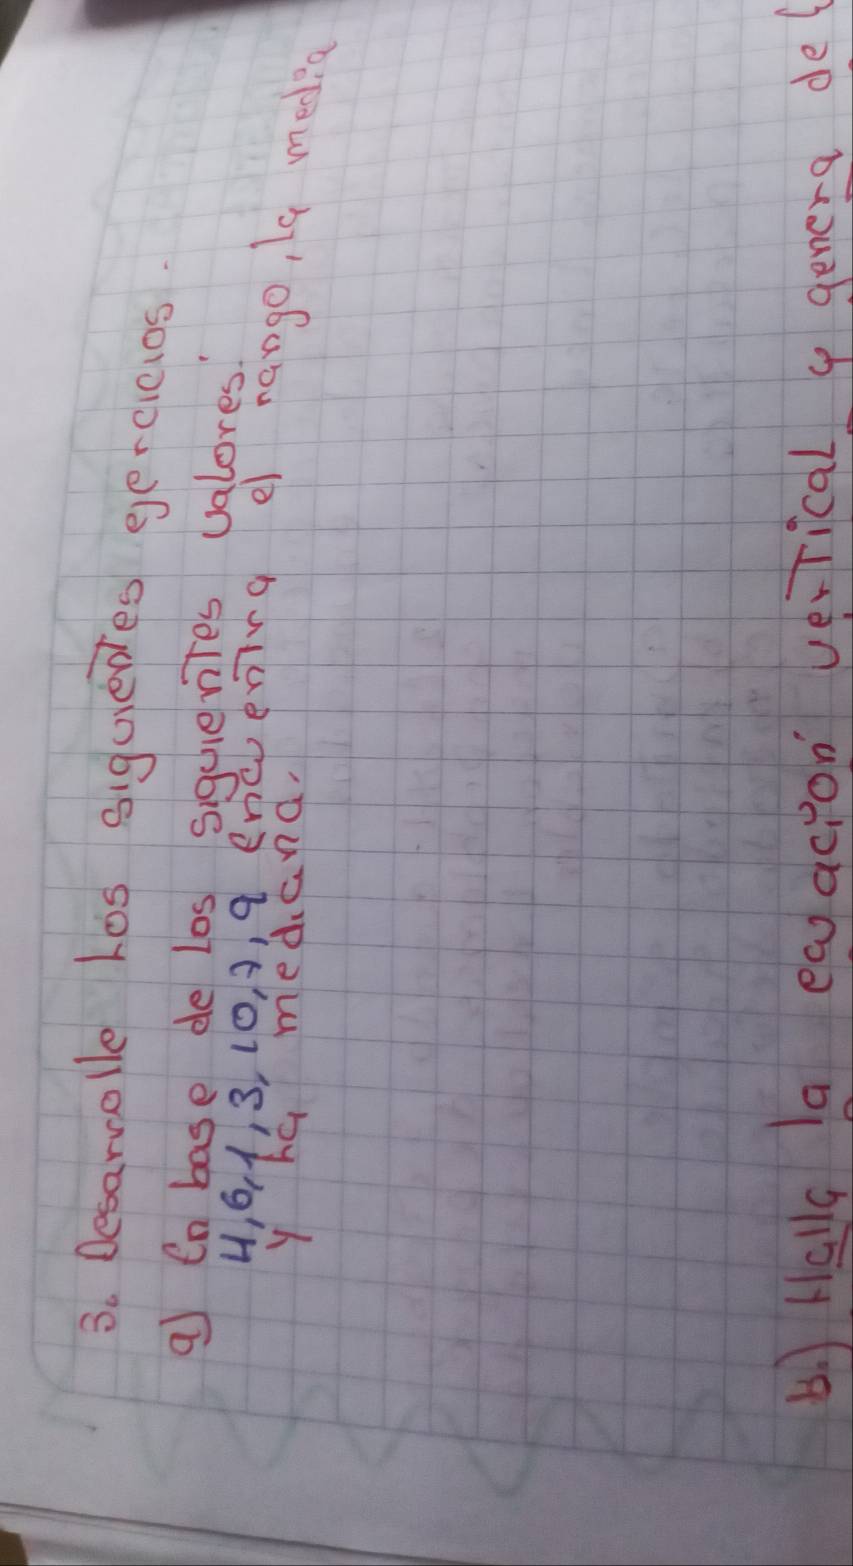 3. Desarrolle Los siguientes ejercicios.
a) En base de los siguientes valores:
4,6,1,3,10,7,9 encuentra el rango, la media
y La mediana.
b.) Halla la ecuación vertical y genera de